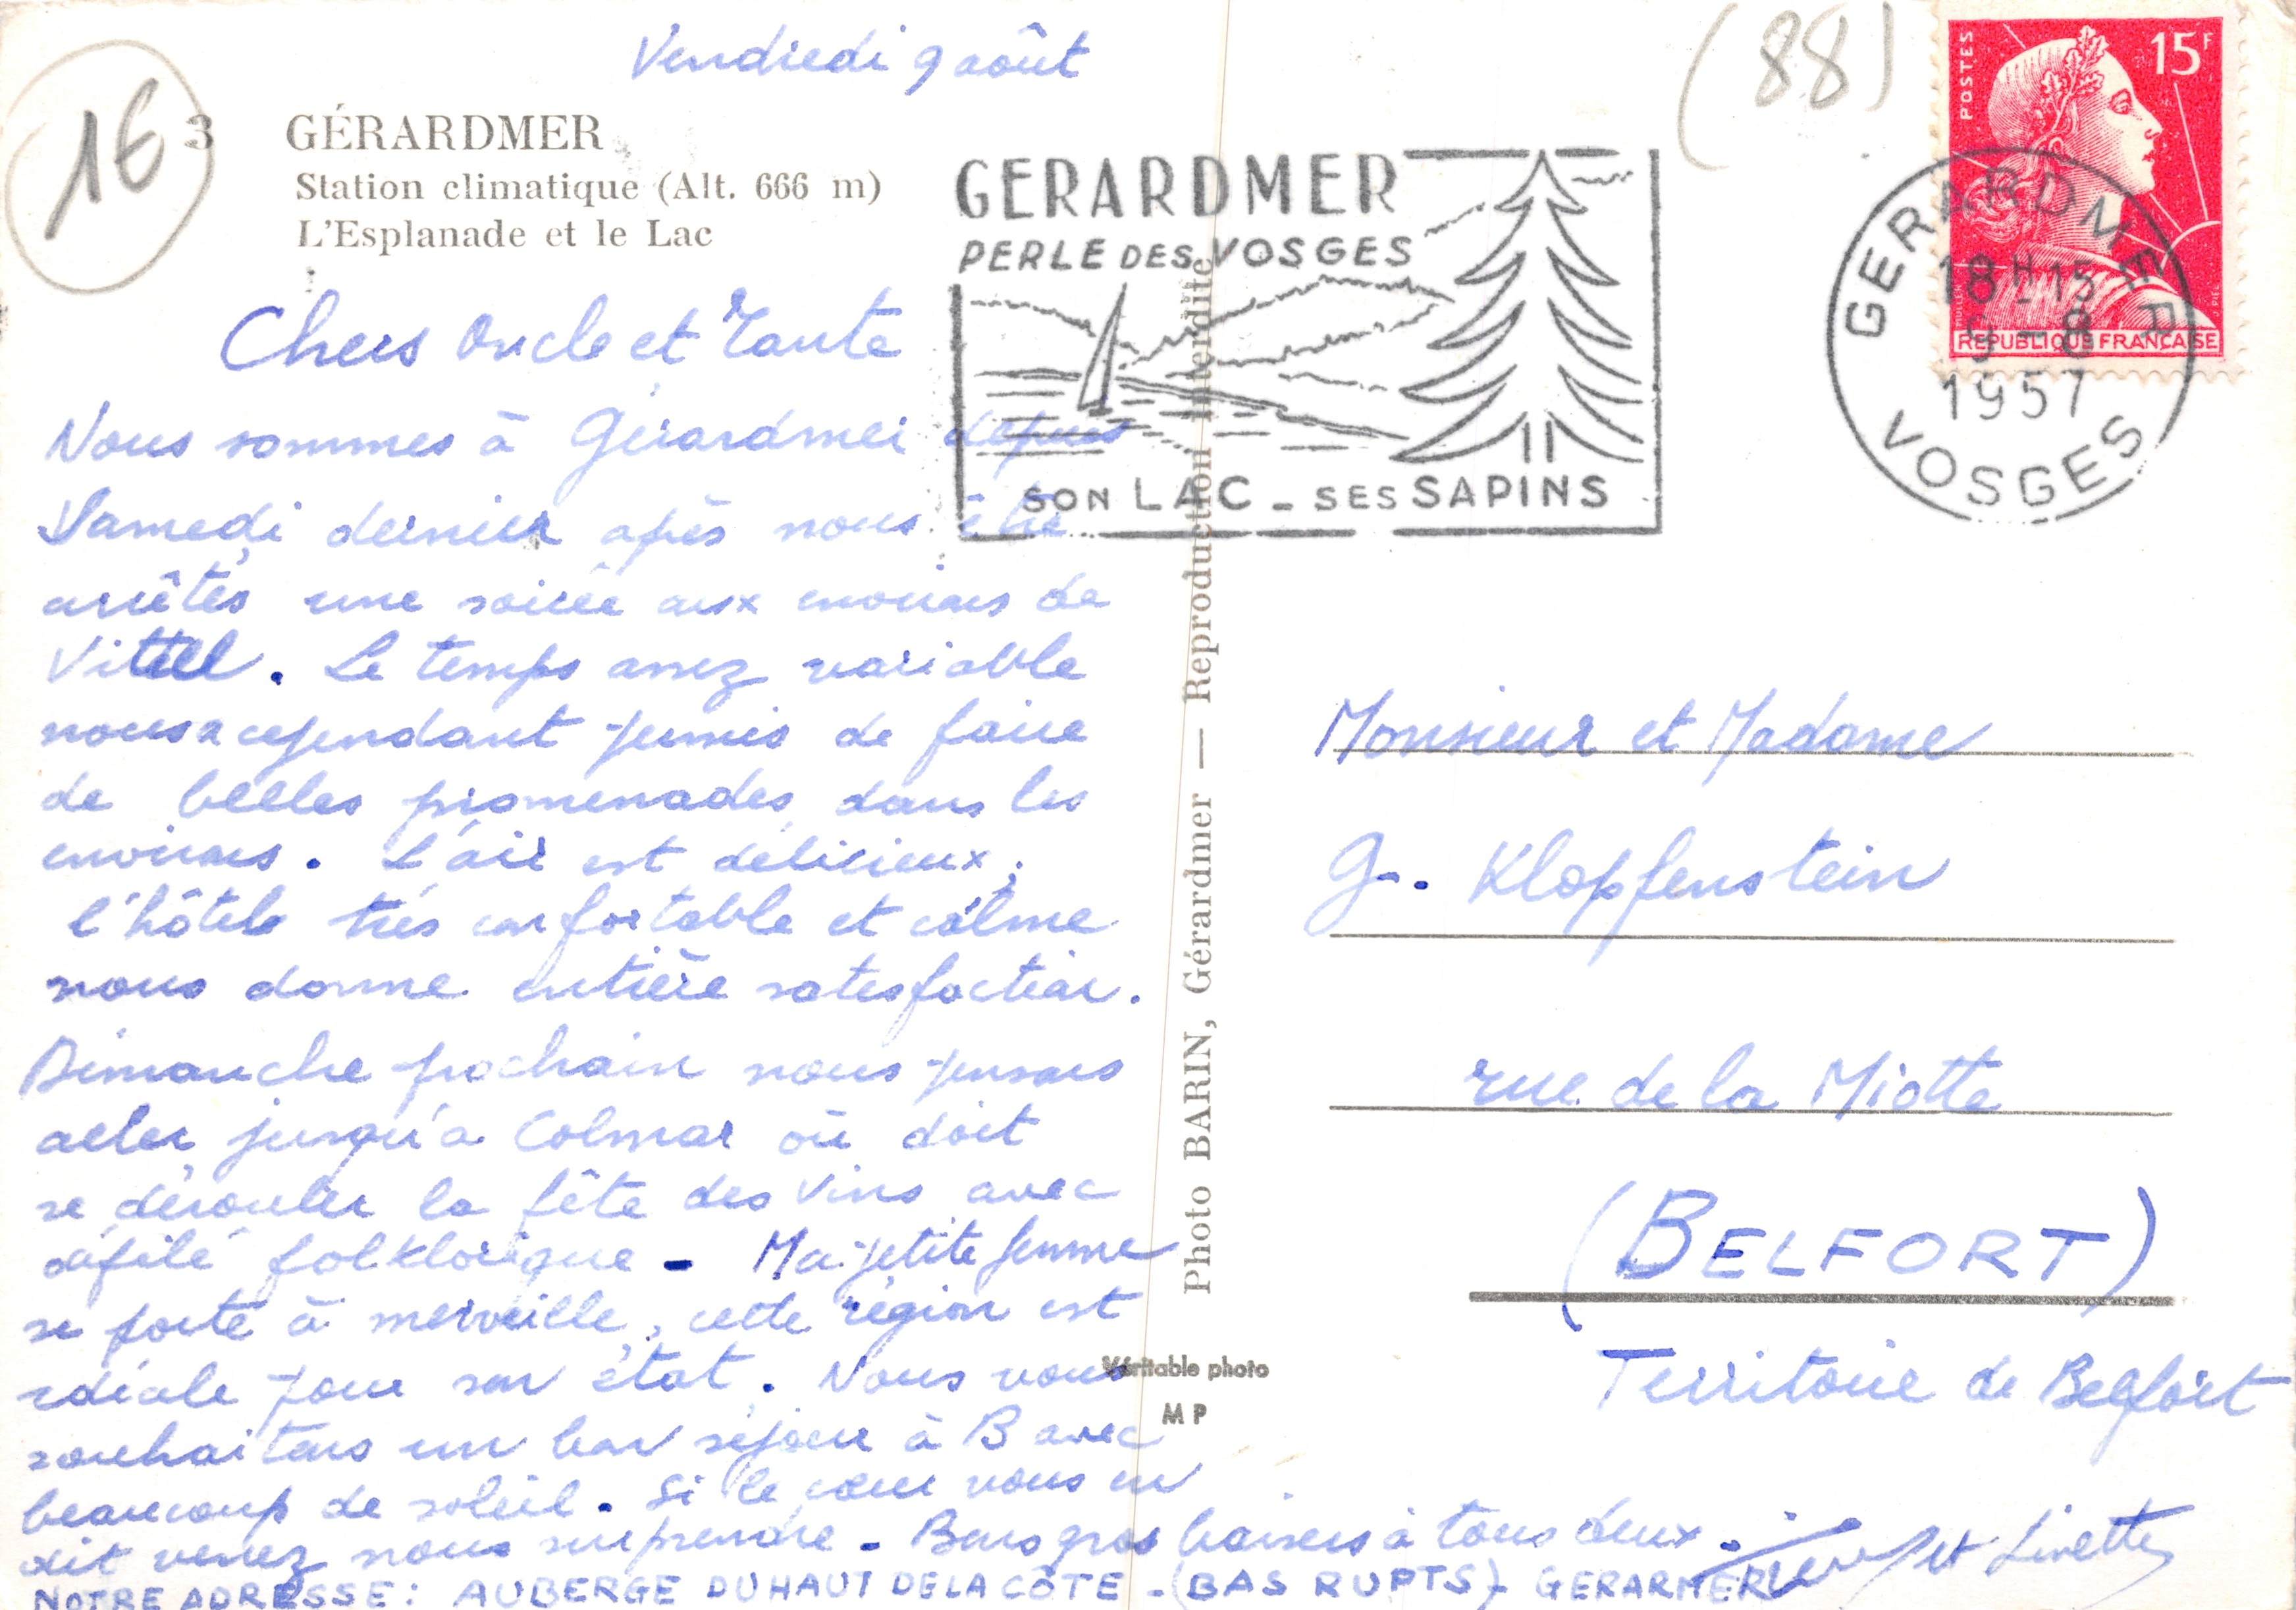 Vendredi 9 août
1€
3
GÉRARDMER
Station climatique (Alt. 666 m)
L'Esplanade et le Lac
Chers Oncle et Tante
Nous sommes à Gérardmer depuis
Samedi dernier après nous être
arrêtés une soirée aux environs de
Vittel. Le temps assez variable
nous a cependant permis de faire
de belles promenades dans les
environs. L'air est délicieux,
l'hôtel très confortable et calme
nous donne entière satisfaction.
Dimanche prochain nous pensons
aller jusqu'à Colmar où doit
se dérouler la fête des Vins avec
défilé folklorique - Ma petite femme
se porte à merveille, cette région est
idéale pour son état. Nous vous
souhaitons un bon séjour à B avec
beaucoup de soleil. Si le cœur vous en
dit venez nous surprendre - Bons gros baisers à tous deux.
et Linette
NOTRE ADRESSE: AUBERGE DU HAUT DE LA CÔTE - (BAS RUPTS) - GERARMER
Photo BARIN, Gérardmer — Reproduction interdite
Véritable photo
M P
GERARDMER
PERLE DES VOSGES
SON LAC - SES SAPINS
(88)
POSTES
15F
REPUBLIQUE FRANCAISE
GERARDMER
18H15
9-8
1957
VOSGES
Monsieur et Madame
G. Klopfenstein
rue de la Miotte
(BELFORT)
Territoire de Belfort